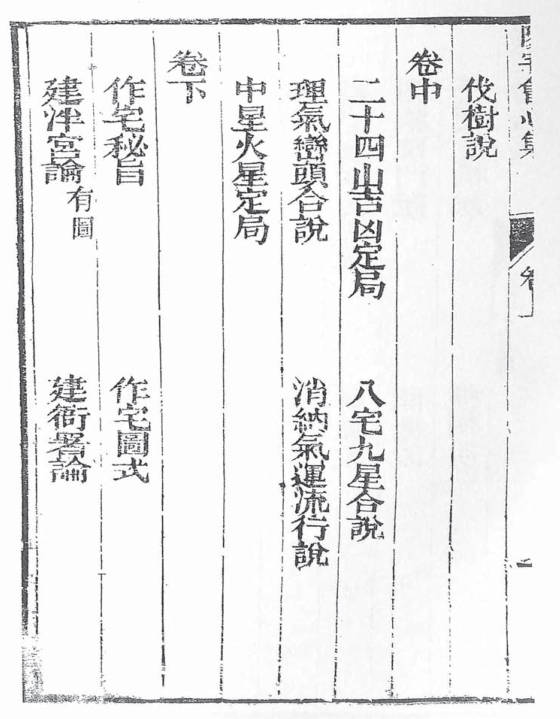 會心集 卷
伐樹說
卷中
二十四山吉凶定局 八宅九星合說
理氣巒頭合說 消納氣運流行說
中星火星定局
卷下
作宅秘旨 作宅圖式
建泮宮論 有圖 建衙署論